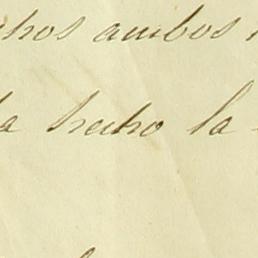 chos ambos
ha hecho la